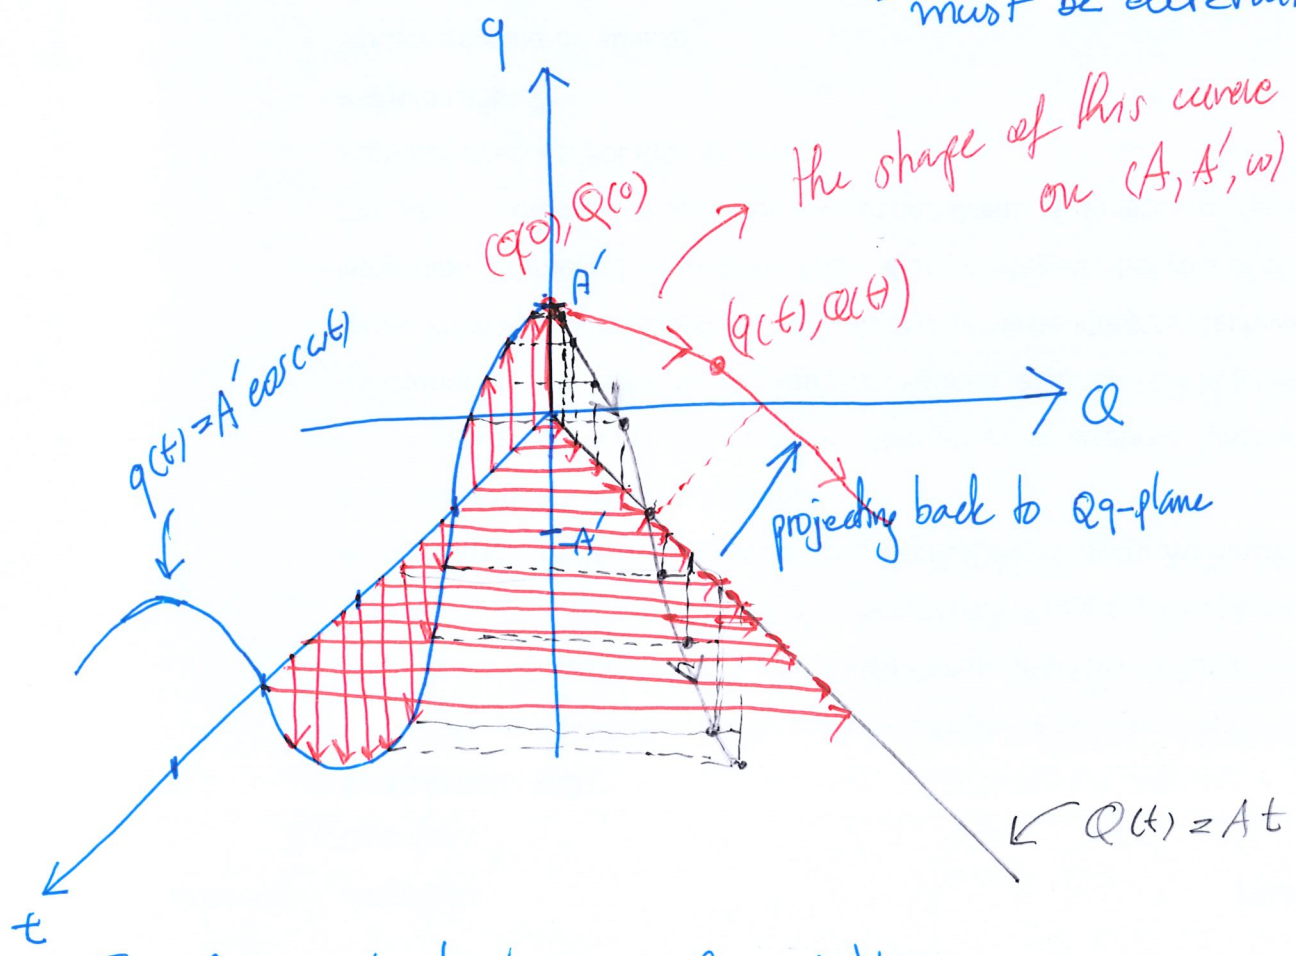 must be
q
the shape of this curve
on (A, A', ω)
(q(0), Q(0)
A'
(q(t), Q(t))
q(t) = A' cos(ωt)
Q
projecting back to Qq-plane
-A'
Q(t) = At
t